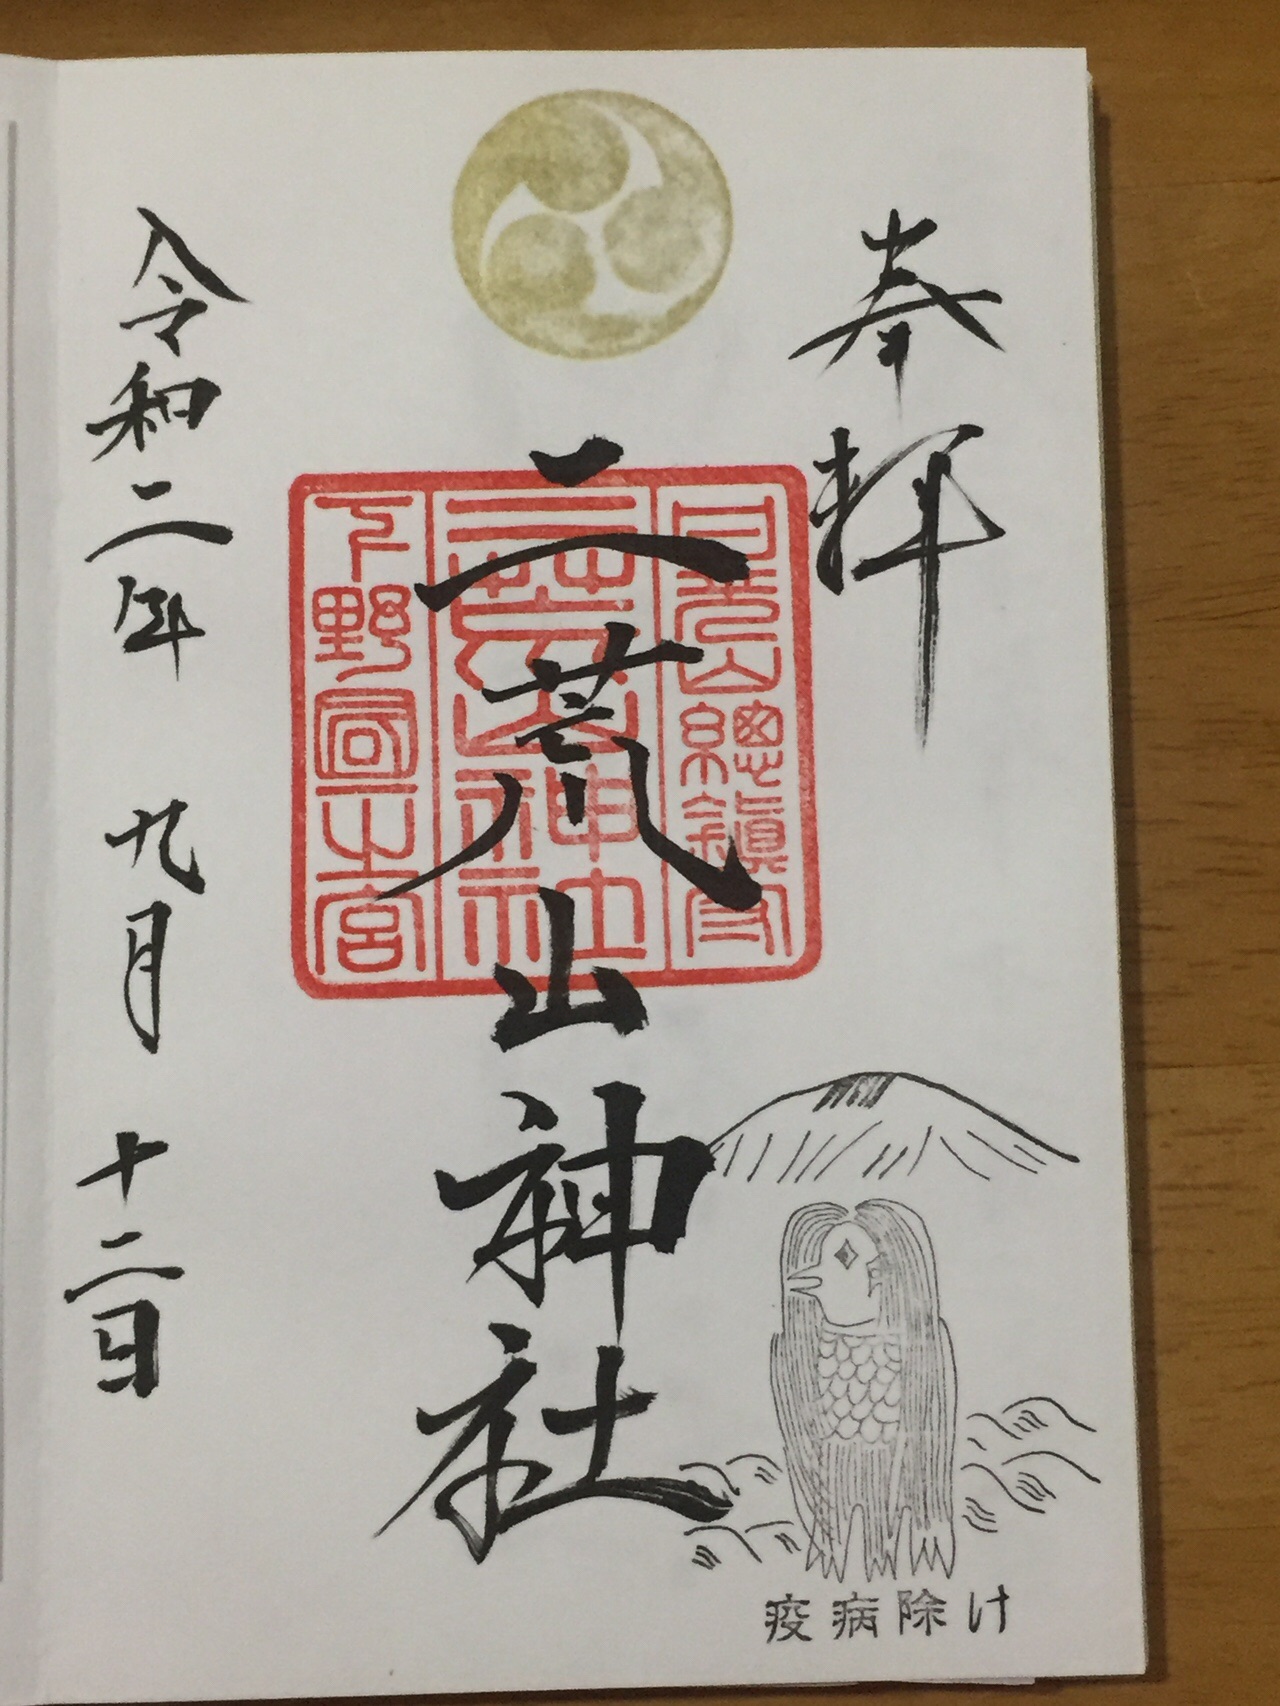 奉拝
日光山總鎮守
二荒山神社
下野国一宮
二荒山神社
令和二年 九月 十二日
疫病除け